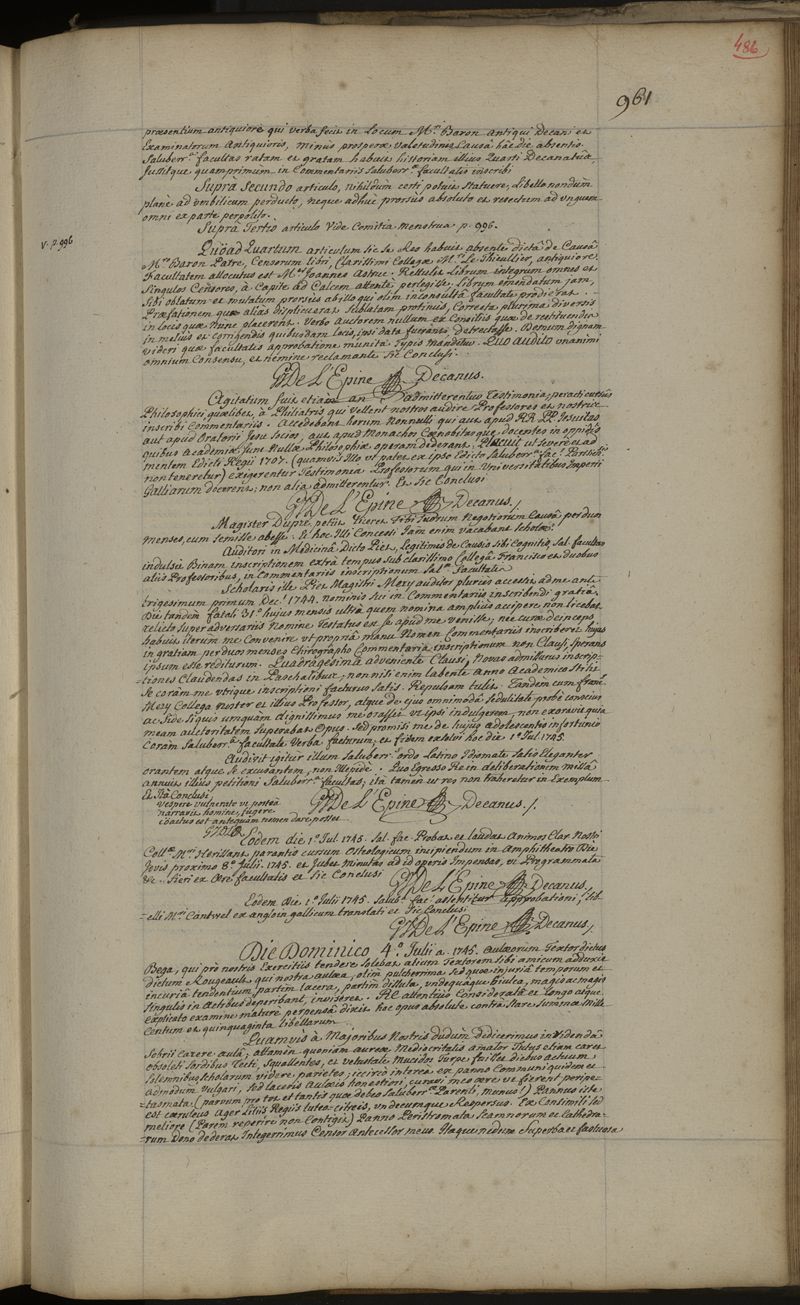 486
961
præsentium antiquiore qui verba fecit in Locum M.ri Baron Antiqui Decani et
Examinatorum Antiquioris, minus prosperæ valetudinis Causâ hâc die absentis
Saluberr.a facultas ratam et gratam habuit historiam illius Quarti Decanatus,
Jussitque quamprimum in Commentariis Saluberr.æ facultatis inscribi
Supra Secundo articulo, nihildum certi potuit Statuere, Libello nondum
planè ad umbilicum perducto, neque adhuc prorsus absoluto et resectum ad unguem
omni ex parte perpolito.
Supra Tertio articulo Vide Comitia menstrua p. 996.
v. p. 996
Quoad Quartum articulum sic se Res habuit absente dictâ de Causâ
M.ro Baron Patre, Censorum libri, Clarissimi Collegæ M.ri Le Thieullier, antiquiore.
Facultatem allocutus est M.er Joannes Astruc. Retulit Librum integrum omnes et
Singulos Censores, à Capite ad Calcem attente perlegisse. Librum emendatum jam,
Sibi oblatum et mutatum prorsus ab illo qui olim inconsultâ facultate prodierat.
Præfationem quæ aliàs displicuerat Sublatam protinus, Correcta plurima diversis
in locis quæ Nunc placerent. Verbo Auctorem nullum ex Consiliis quæ de restituendis
in melius et corrigendis quibusdam locis, ipsi data fuerant detrectasse. Demum dignam
videri quæ facultatis approbatione munita Typis mandetur. Quo audito unanimi
omnium Consensu, et nemine reclamante Sic Conclusi.
G J De L'Epine Decanus.
Agitatum fuit etiam an admitterentur Testimonia peracti cursus
Philosophici quælibet, à Philiatris qui vellent nostros audire Professores et nostris
inscribi Commentariis. Accedebant horum Nonnulli qui aut apud RR. PP. Jesuitas
aut apud Oratorii Jesu Socios, aut apud Monachos Coenobitasque, docentes in oppidis
quibus Academiæ sunt Nullæ Philosophiæ operam dederant. Placuit ut Severe et ad
mentem Edicti Regii 1707. (quamvis illo ut patet ex ipso Edicto Saluberr.a fac. Parisiensis
non teneretur) exigerentur Testimonia Professorum qui in Universitatibus Imperii
Galliarum docerent; non alia admitterentur. Et Sic Conclusi
G J De L'Epine Decanus./
Magister Dupré petiit liceret Sibi Suorum Negotiorum Causâ per duos
menses, cum semisse abesse. Et hoc Illi Concessi Jam enim vacabant Scholæ.
Auditori in Medicinâ Dicto Piet, Legitimis de Causis Sibi Cognitis Sal. facultas
indulsit Binam inscriptionem extrà tempus Sub clarissimo Collegâ Francisco et duobus
aliis Professoribus, in Commentariis inscriptionum Sal.mæ Facultatis
Scholaris ille Piet Magistri Mery auditor pluries accessit ad me ante
trigesimum primum Dec.s 1744. Nominis sui in Commentariis inscribendi gratiâ.
Die tandem fatali 31.o hujus mensis ultrà quem nomina ampliùs accipere non licebat
relicto Super adversariis Nomine Testatus est se apud me venisse; nec curæ deinceps
habuit iterum me Convenire ut propriâ manu Nomen Commentariis inscriberet hujus
in gratiam per duos menses Chirographo Commentaria inscriptionum non Clausi, Sperans
ipsum esse rediturum. Quadragesimâ adveniente Clausi, Novas admissurus inscrip-
=tiones Claudendas in Paschalibus, non nisi enim labente Anno Academico Stetit
Se coram me utrique inscriptioni facturus Satis. Repulsam tulit. Tandem cum franc.
Mery Collega Noster et illius Professor, atque de quo omnimodâ Sedulitate probè conscius
ac Side si quis umquam dignissimus me orasset ut ipsi indulgerem, non exoravit quia
meam auctoritatem Superabat Opus. Sed promisi me de hujus adolescentis infortunio
Coram Saluberr.a facultate Verba facturum; et fidem exsolvi hoc die 1.a Jul. 1745.
Audivit igitur illum Saluberr.s ordo Latino Idiomate Satis Eleganter
orantem atque Se excusantem, non illepidè. Quo Egresso Re in deliberationem missâ
annuit illius petitioni Saluberr.a facultas; ità tamen ut res non traheretur in Exemplum
Et Ità Conclusi,
vespere vulnerato ut posteà
narravit homine, fugere
coactus est antequam nomen dare posset
G J D L E
G J De L'Epine Decanus./
Eodem die 1.a Jul. 1745. Sal. fac. Probat et laudat Animos Clar. Nostri
Coll.æ M.ri Herissant parantis cursum Osteologicum incipiendum in Amphitheatro Die
Jovis proximo 8.a Julii. 1745. et Jubet Minutas ad id operis Impensas, ut Programmata
&c. Fieri ex Aere facultatis et Sic Conclusi
G J De L'Epine Decanus.
Eodem Die. 1.a Julii 1745. Salub.a fac. assentitur approbationi, Lib-
elli M.ri Cantwel ex anglo in gallicum translati et Sic Conclusi
G J De L'Epine Decanus./
Die Dominico 4.a Julii a. 1745. Aulæorum Textor dictus
Bega, qui pro nostris Exercitiis tendere Solebat alium Textorem Sibi amicum adduxit
dictum Rougeault qui nostra aulæa, olim pulcherrima sed quæ injuriâ temporum et
incuriâ tendentium partim lacera, partim dissuta, undequaque hiulca, magis ac magis
Singulis in Actibus deperibant, inviseret. Re attentius Consideratâ et longo atque
explicato examine mature perpensâ dixit hæc opus absolute contrà Stare Summâ Mille
Centum et quinquaginta libellarum.
Quamvis à Majoribus Nostris dudum dedicerimus invidendâ
Sobrii carere aulâ; attamen quoniam aureæ Mediocritatis amator Tutus etiam caret
obsoleti Sordibus Tecti, Squallentes, et vetustate Mucidos Turpe fuisset diebus Actuum
Solemnibus Scholarum videre parietes; iccircò intereà ex panno Communi quidem et
Admodum Vulgari, sed laceris Aulæis honestiori, curavi meo ære ut fierent peripe-
=tasmata (parvum pro tot et tantis quæ debeo Saluberr.æ Parenti, munus!) Pannus iste
est cæruleus Ager Liliis Regiis luteo citreis, undecumque Respersus. Ex Consimili sed
meliore (Parem reperire non Contigit) Panno Peristromata Scamnorum et Cathedra-
rum Dono dederat Integerrimus Censor Antecessor meus Itaque nedum Superba et fastuosa